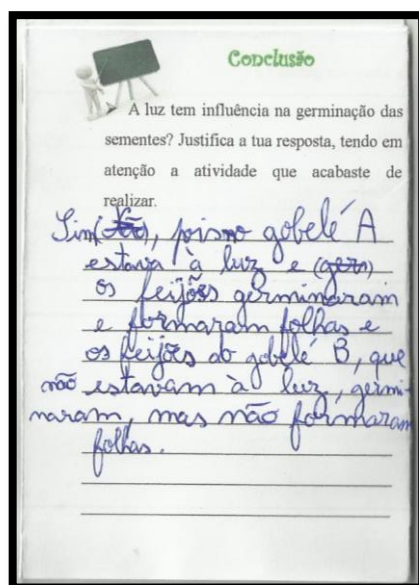 Conclusão
➤ A luz tem influência na germinação das
sementes? Justifica a tua resposta, tendo em
atenção a atividade que acabaste de
realizar.
Sim, pois no gobelé A
estava à luz e (ger)
os feijões germinaram
e formaram folhas e
os feijões do gobelé B, que
não estavam à luz, germi-
naram, mas não formaram
folhas.